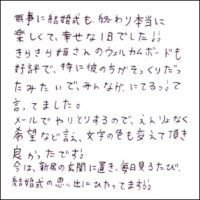 無事に結婚式も、終わり本当に
楽しくて、幸せな1日でした!!
きらきら姫さんのウェルカムボードも
好評で、特に彼の方がそっくりだっ
たみたいで、みんなが、にてるぅ。って
言ってました。
メールでやりとりするので、えんりょなく
希望など言え、文字の色も変えて頂き
良かったです!
今は、新居の玄関に置き、毎日見るたび、
結婚式の思い出にひたってます!!